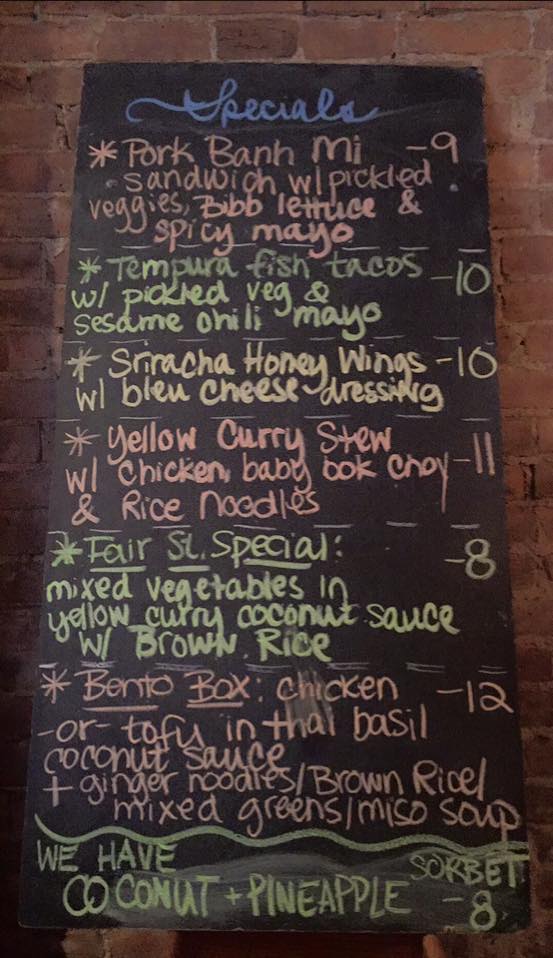 Specials
* Pork Banh Mi -9
sandwich w/ pickled
veggies, Bibb lettuce &
spicy mayo
* Tempura fish tacos -10
w/ pickled veg &
sesame chili mayo
* Sriracha Honey Wings -10
w/ bleu cheese dressing
* Yellow Curry Stew -11
w/ chicken, baby bok choy
& Rice Noodles
* Fair St. Special: -8
mixed vegetables in
yellow curry coconut sauce
w/ Brown Rice
* Bento Box: chicken -12
-or- tofu in thai basil
coconut sauce
+ ginger noodles/Brown Rice/
mixed greens/miso soup
WE HAVE SORBET
COCONUT + PINEAPPLE -8